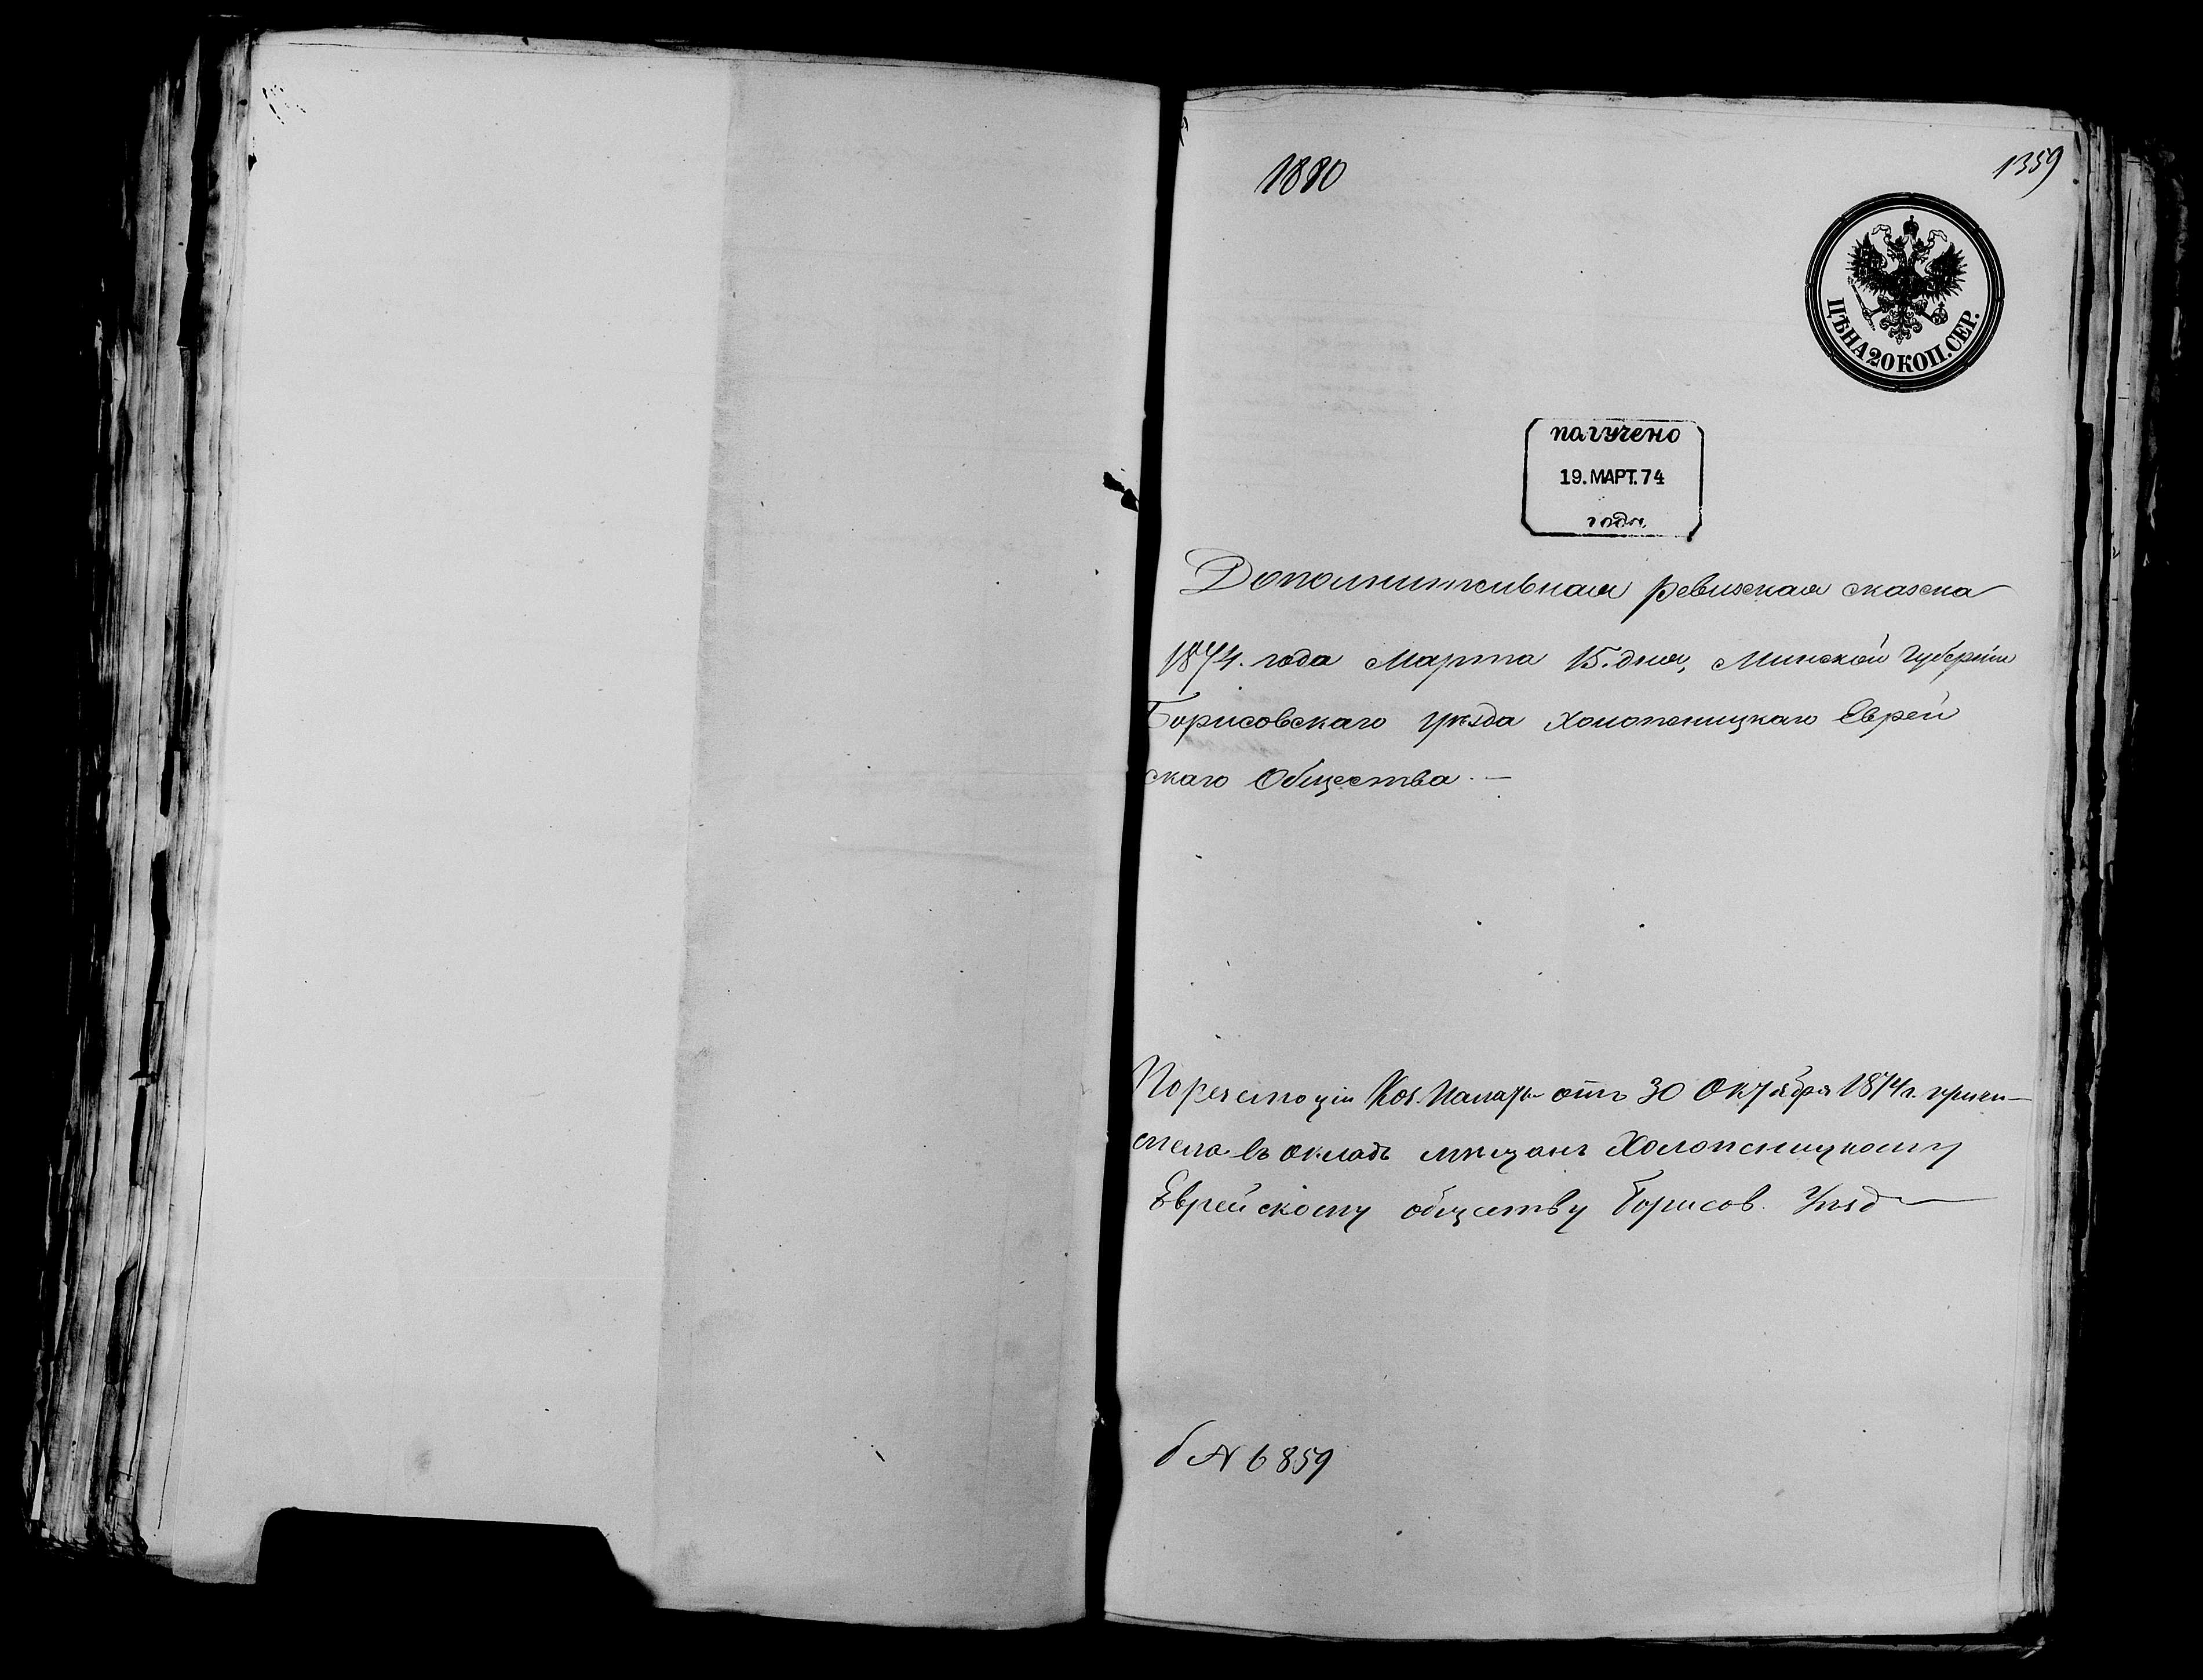 1880
1359
ЦѢНА 20 КОП. СЕР.
получено
19. МАРТ. 74
года.
Дополнительная ревизская сказка
1874. года Марта 15. дня, Минской Губерніи
Борисовскаго уѣзда Холопеницкаго Еврей
скаго Общества. —
По резолюціи Каз. Палаты отъ 30 Октября 1874 г. причи-
слена въ окладъ мѣщанъ Холопеницкому
Еврейскому обществу Борисов. Уѣзд
б № 6859